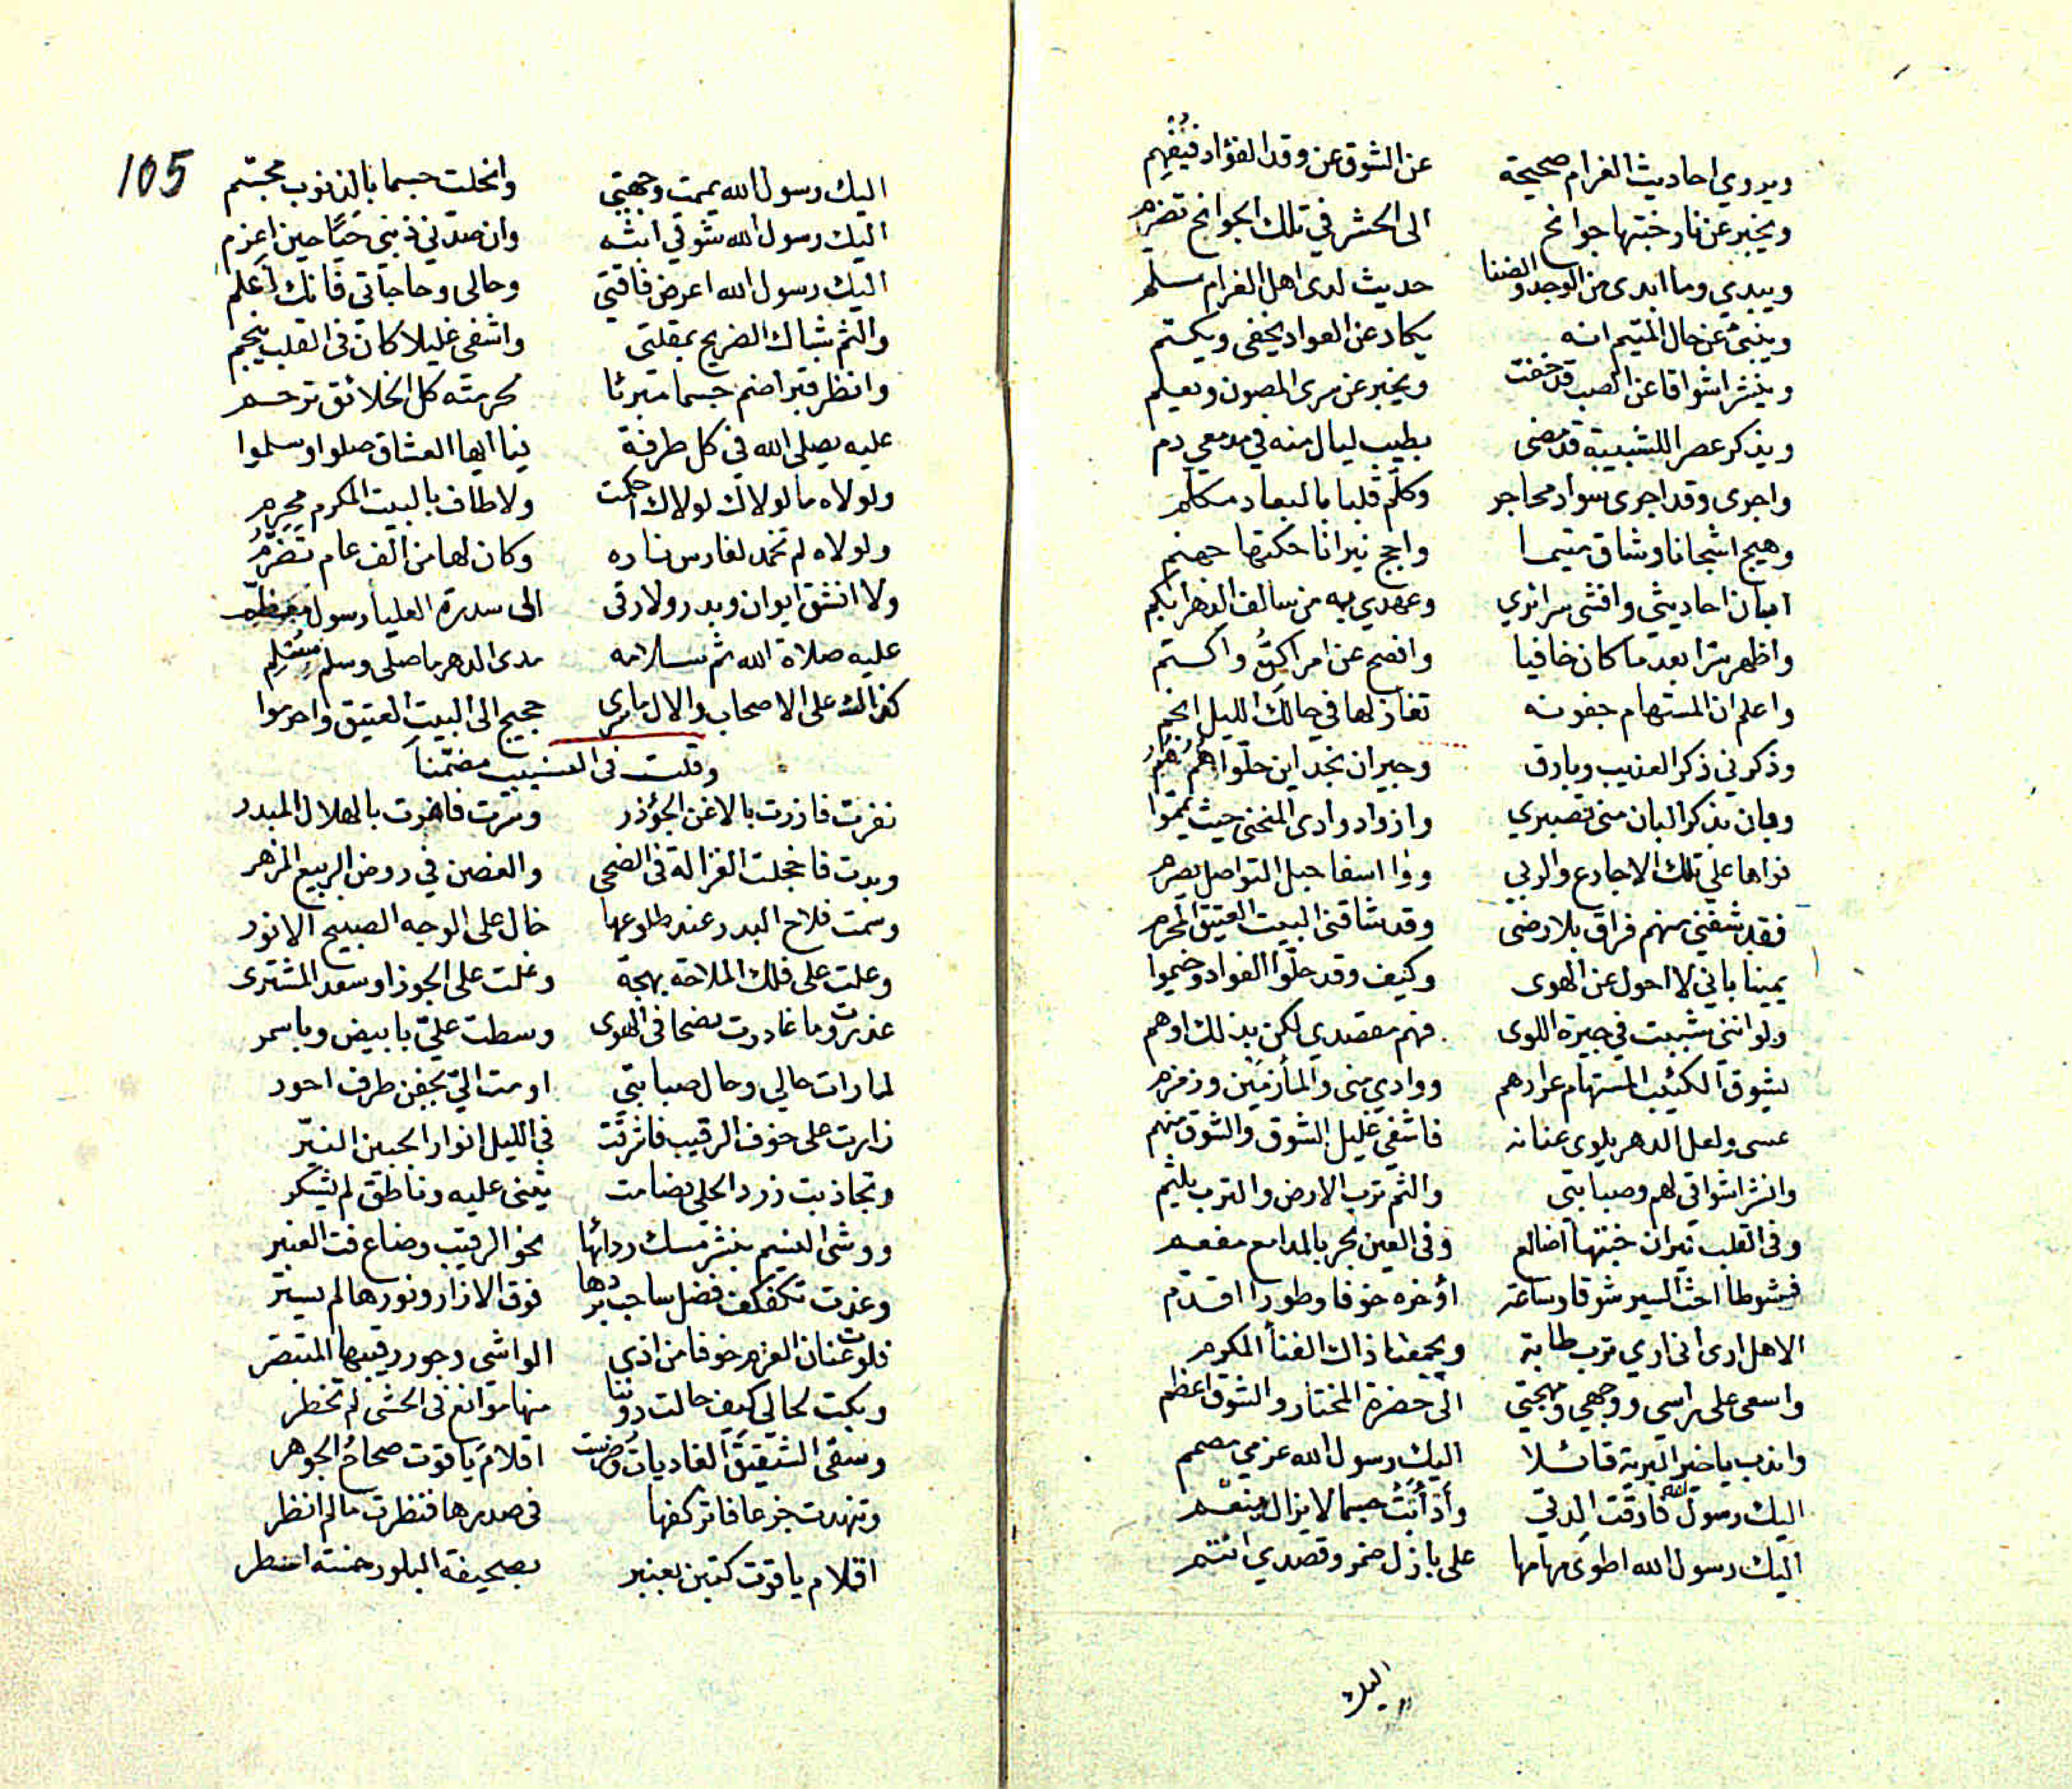 ويروي احاديث الغرام صحيحة عن الشوق عن وقد الفؤاد فيُفهِم
ويخبر عن نار خبتها جوانح الى الحشر في تلك الجوانح تضرم
ويبدي وما ابدى من الوجد والضنا حديث لدى اهل الغرام مسلم
وينبئ عن حال المتيم انه يكاد عن العواد يخفى ويكتم
وينشر اشواقا عن الصب قد خفت ويخبر عن سرى المصون ويعلم
ويذكر عصرا للشبيبة قد مضى بطيب ليال منه في مدمعي دم
واجرى وقد اجرى سواد محاجر وكلّم قلبا بالبعاد مكلم
وهيج اشجانا وشاق متيما واجج نيرانا حكتها جهنم
ابان احاديثي وافشى سرائري وعهدي به من سالف الدهر ابكم
واظهر سرا بعد ما كان خافيا وافصح عن امر اكنُّ واكتم
واعلم ان المستهام جفونه تغازلها في حالك الليل انجم
وذكرني ذكر العذيب وبارق وجيران نجد اين حلّوا هُم هُمُ
وبان بذكر البان مني تصبري وازداد وادى المنحنى حيث يمموا
نواها على تلك الاجارع والربي ووا اسفا حبل التواصل يصرم
فقد شفني منهم فراق بلا رضى وقد شاقني البيت العتيق المحرم
يمينا باني لا احول عن الهوى وكيف وقد حلّوا الفواد وخيموا
ولو انني شببت في جيرة اللوى فهم مقصدي لكن بذلك اوهم
يشوق الكئيب المستهام عرارهم ووادي منى والمأزمين وزمزم
عسى ولعل الدهر يلوى عنانه فاشفي غليل الشوق والشوق منهم
وانشر اشواقي لهم وصبابتي والثم ترب الارض والترب يلثم
وفى القلب نيران خبتها اضالع وفى العين بحر بالمدامع مفعم
فشوطا احث السير شوقا وساعة اؤخره خوفا وطورا اقدم
الا هل ارى اني اري ترب طابة ويجمعنا ذاك الفنأ المكرم
واسعى على راسي ووجهي ومهجتي الى حضرة المختار والشوق اعظم
واندب يا خير البرية قائلا اليك رسول الله عزمي مصمم
اليك رسول الله فارقت لذتي وأذأبتُ جسما لا يزال منعّم
اليك رسول الله اطوي مهامها على بازل ضمر وقصدي انتم
اليك
105
اليك رسول الله يممت وجهتي وانحلت جسما بالذنوب مجسّم
اليك رسول الله شوقي ابثه وان صدّني ذنبي حَيًّا حين اعزم
اليك رسول الله اعرض فاقتي وحالى وحاجاتي فانك اعلم
والثم شباك الضريح بمقلتي واشفى غليلا كان في القلب ينجم
وانظر قبرا ضم جسما مبرئا بحرمته كل الخلائق ترحم
عليه يصلي الله في كل طرفة فيا ايها العشاق صلوا وسلموا
ولولاه ما لولاك لولاك احكمت ولا طاف بالبيت المكرم محرم
ولولاه لم تخمد لفارس ناره وكان لها من الف عام تضرّمُ
ولا انشق ايوان وبدر ولا رقى الى سدرة العليا رسول معظم
عليه صلاة الله ثم سلامه مدى الدهر ما صلى وسلم مسلم
كذاك على الاصحاب والال ما سرى حجيج الى البيت العتيق واحرموا
وقلت في النسيب مضمّناً
نفرت فازرت بالاغن الجؤذر وسرت فاهوت بالهلال المبدر
وبدت فاخجلت الغزالة في الضحى والغصن في روض الربيع المزهر
وسمت فلاح البدر عند طلوعها خال على الوجه الصبيح الانور
وعلت على فلك الملاحة بهجة وغلت على الجوزا وسعد المشترى
غدرت وما غادرت نضحا في الهوى وسطت عليّ بابيض وباسمر
لما رات حالي وحال صبابتي اومت اليّ بجفن طرف احور
زارت على خوف الرقيب فاشرقت في الليل انوار الجبين النيّر
وتجاذبت زرد الحلي بصامت يثني عليه وناطق لم يشكر
ووشى النسيم بنشر مسك ردائها نحو الرقيب وضاع فت العنبر
وغدت تكفكف فضل ساحب بردها فوق الازار ونورها لم يستر
فلوت عنان العزم خوفا من اذى الواشي وجور رقيبها المتبصر
وبكت لحالي كيف حالت دوننا منها موانع في الحشى لم تخطر
وسقى الشقيق الغاديات اقلام ياقوت صحاح الجوهر
وتنهدت جزعا فاثر كفها في صدرها فنظرت ما لم انظر
اقلام ياقوت كتبن بعنبر بصحيفة البلور خمسة اسطر